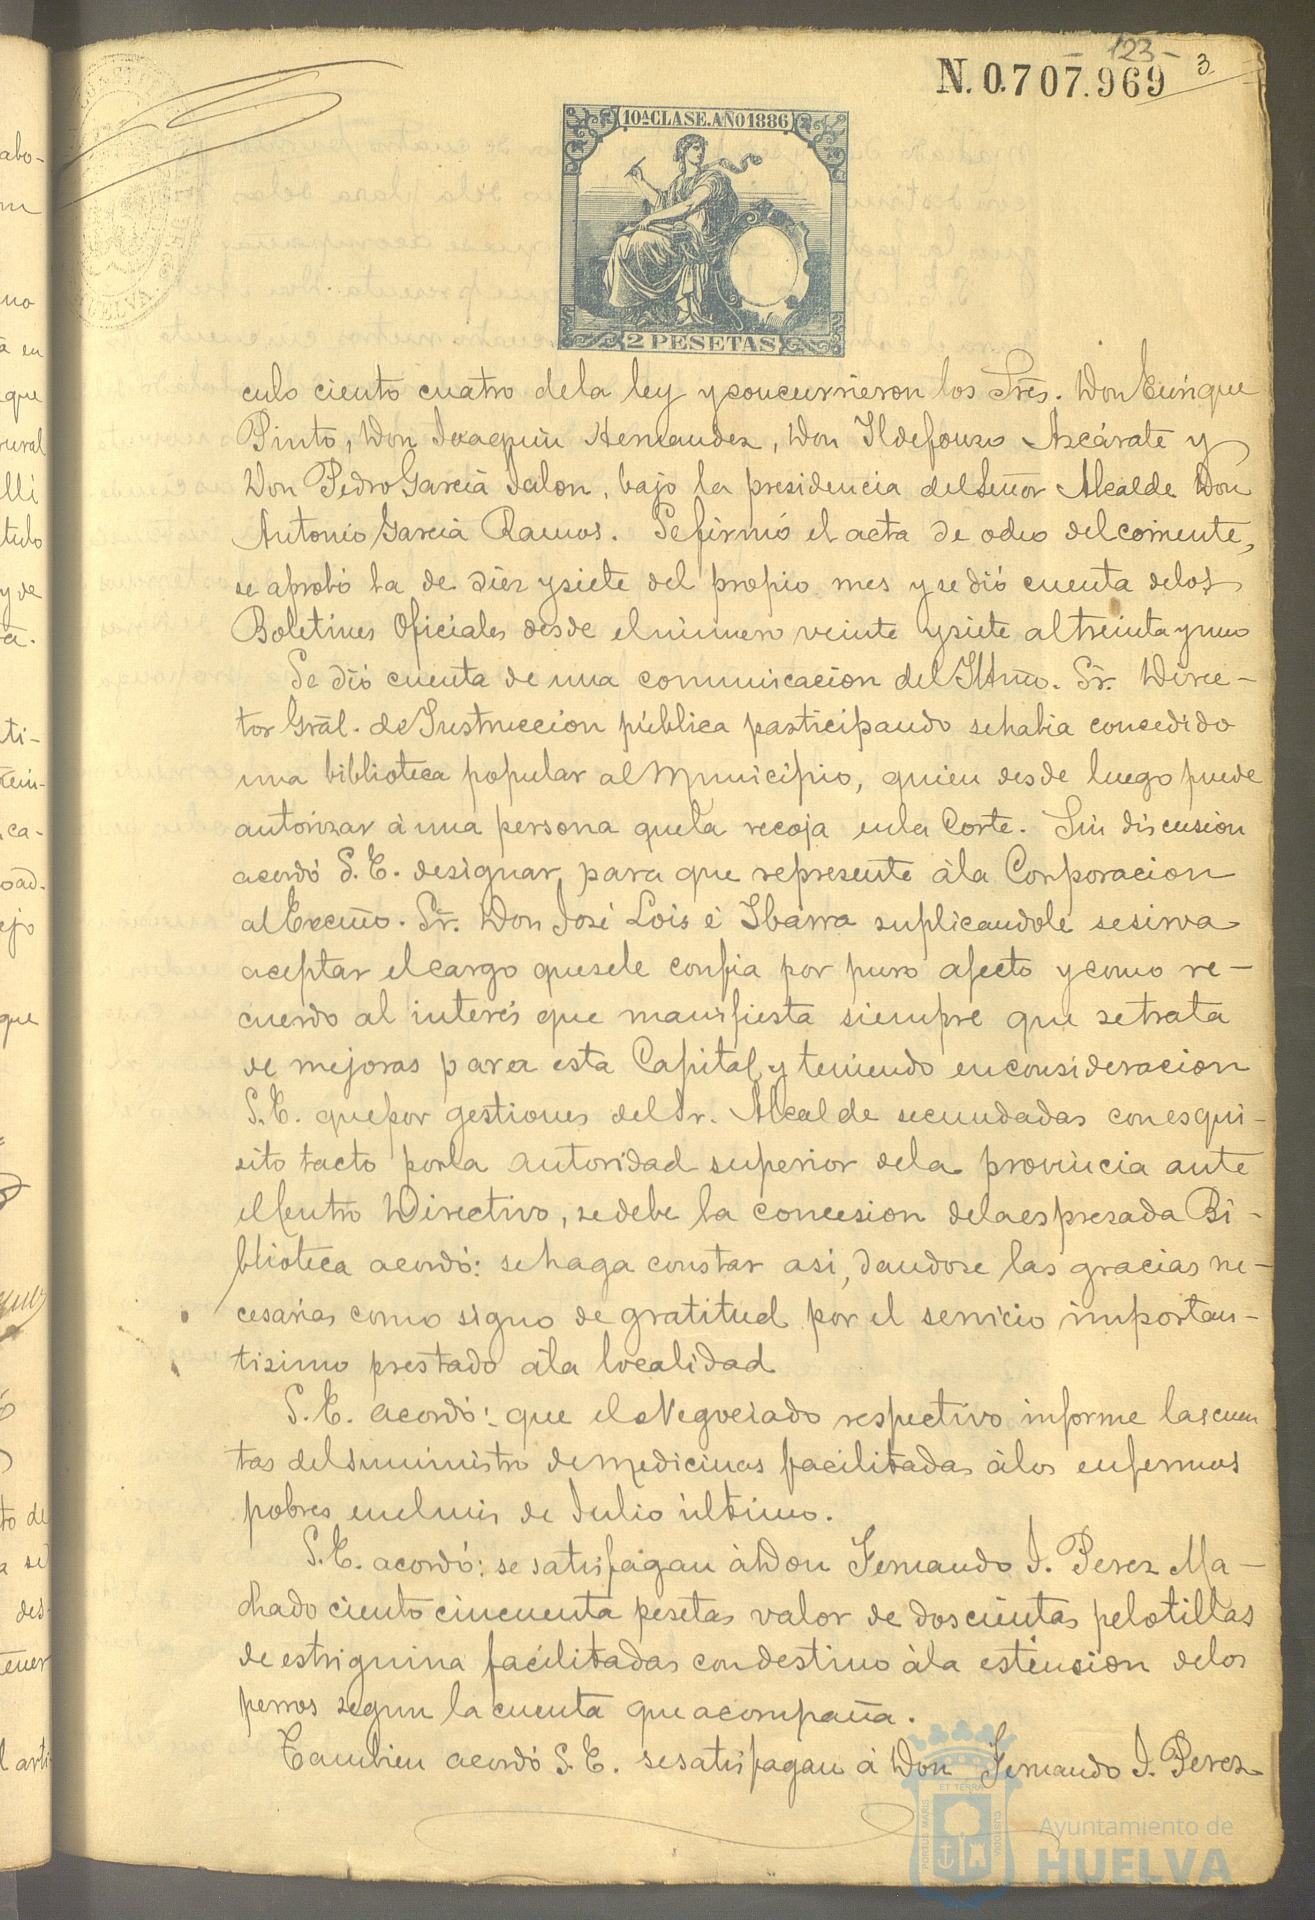 123-
N. 0.707.969 3
10ª CLASE. AÑO 1886
2 PESETAS
culo ciento cuatro de la ley y concurrieron los Sres. Don Enrique
Pinto, Don Joaquin Hernandez, Don Ildefonso Azcárate y
Don Pedro Garcia Jalon, bajo la presidencia del Señor Alcalde Don
Antonio Garcia Ramos. Se firmó el acta de ocho del corriente,
se aprobó la de diez y siete del propio mes y se dió cuenta de los
Boletines Oficiales desde el número veinte y siete al treinta y uno
Se dió cuenta de una comunicacion del Iltmo. Sr. Direc-
tor Gral. de Instruccion pública participando se habia concedido
una biblioteca popular al Municipio, quien desde luego puede
autorizar á una persona que la recoja en la Corte. Sin discusion
acordó S. E. designar para que represente á la Corporacion
al Excmo. Sr. Don José Lois é Ibarra suplicandole se sirva
aceptar el cargo que se le confia por puro afecto y como re-
cuerdo al interés que manifiesta siempre que se trata
de mejoras para esta Capital y teniendo en consideracion
S. E. que por gestiones del Sr. Alcalde secundadas con esqui-
sito tacto por la autoridad superior de la provincia ante
el Centro Directivo, se debe la concesion de la espresada Bi-
blioteca acordó: se haga constar asi, dandose las gracias ne-
cesarias como signo de gratitud por el servicio importan-
tisimo prestado á la localidad
S. E. acordó: que el Negociado respectivo informe las cuen
tas del suministro de medicinas facilitadas á los enfermos
pobres en el mes de Julio último.
S. E. acordó: se satisfagan á Don Fernando J. Perez Ma-
chado ciento cincuenta pesetas valor de doscientas pelotillas
de estriguina facilitadas con destino á la estincion de los
perros segun la cuenta que acompaña.
Tambien acordó S. E. se satisfagan á Don Fernando J. Perez
PORTUS MARIS ET TERRAE CUSTODIA
Ayuntamiento de
HUELVA